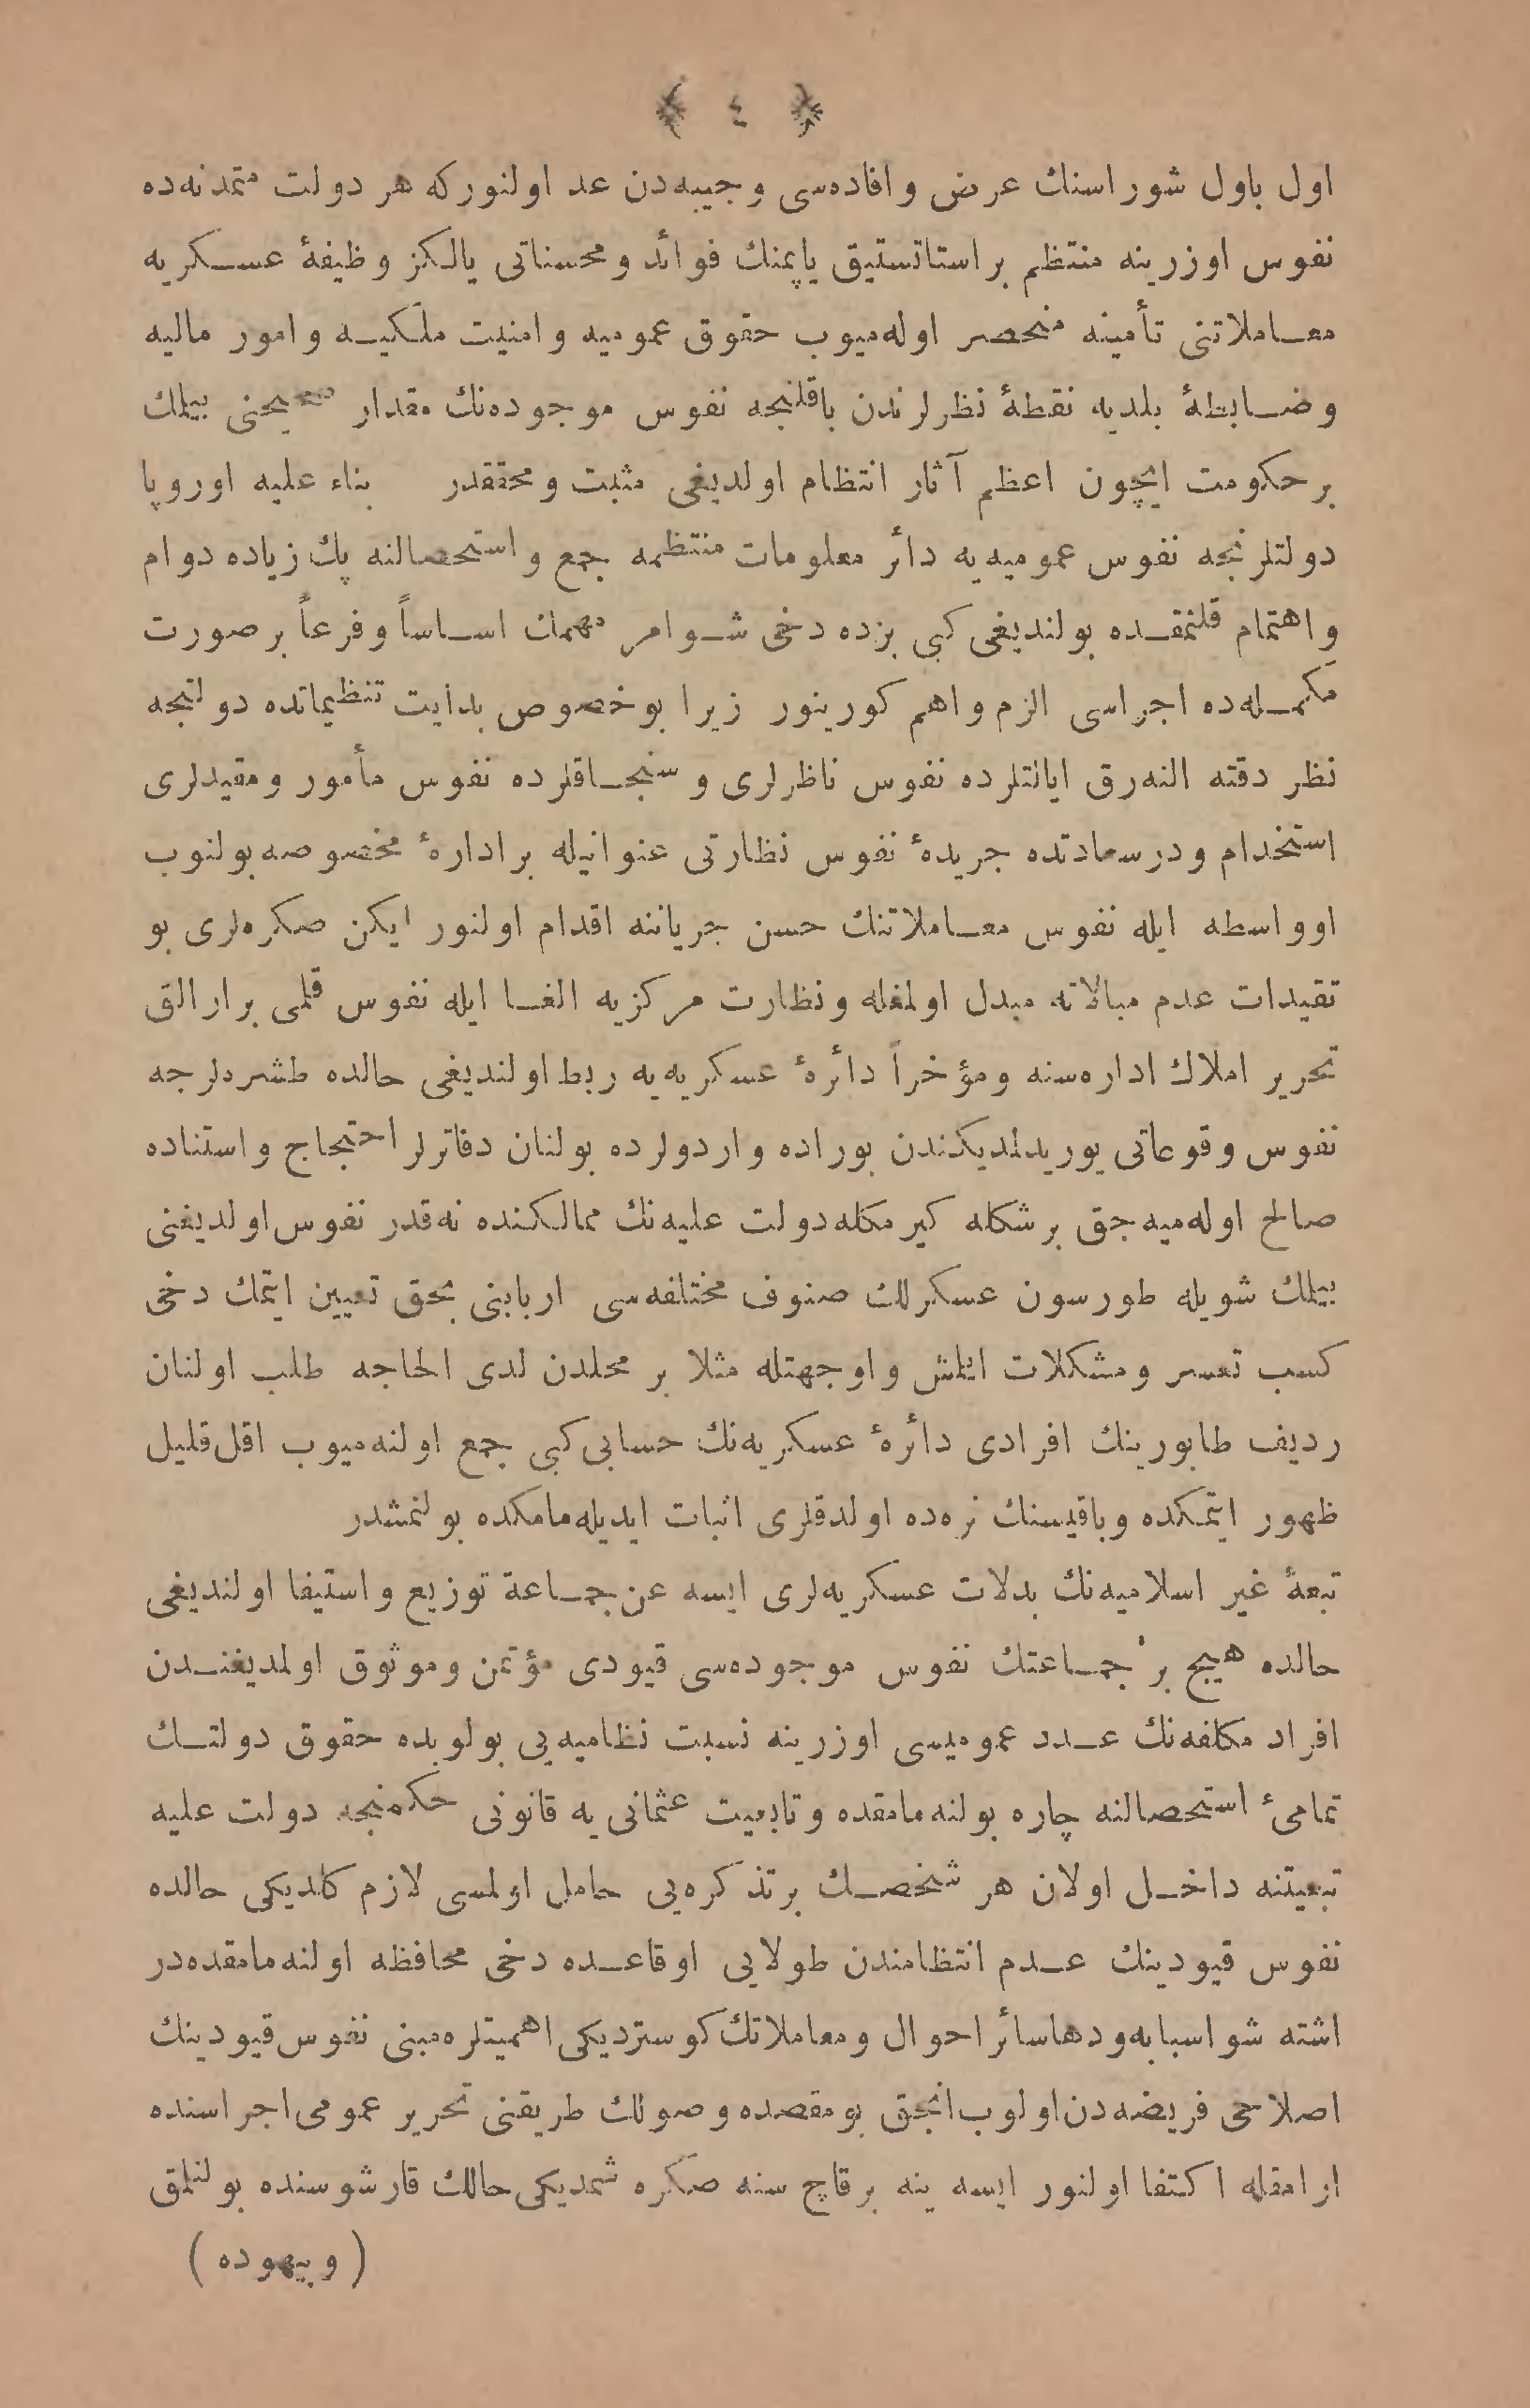 ﴿ ٤ ﴾
اول باول شوراسنك عرض وافاده‌سی وجیبه‌دن عد اولنوركه هر دولت متمدنه‌ده
نفوس اوزرینه منتظم براستاتستیق یاپمنك فوائد ومحسناتی یالكز وظیفهٔ عسكریه
معاملاتنی تأمینه منحصر اوله‌میوب حقوق عمومیه وامنیت ملكیه وامور مالیه
وضابطهٔ بلدیه نقطهٔ نظرلرندن باقلنجه نفوس موجوده‌نك مقدار صحیحنی بیلمك
برحكومت ایچون اعظم آثار انتظام اولدیغی مثبت ومحققدر بناء علیه اوروپا
دولتلرنجه نفوس عمومیه‌یه دائر معلومات منتظمه جمع واستحصالنه پك زیاده دوام
واهتمام قلنمقده بولندیغی كبی بزده دخی شو امر مهمك اساساً وفرعاً برصورت
مكمله‌ده اجراسی الزم واهم كورینور زیرا بوخصوص بدایت تنظیماتده دولتجه
نظر دقته النه‌رق ایالتلرده نفوس ناظرلری و سنجاقلرده نفوس مأمور ومقیدلری
استخدام ودرسعادتده جریدهٔ نفوس نظارتی عنوانیله برادارهٔ مخصوصه بولنوب
اوواسطه ایله نفوس معاملاتنك حسن جریاننه اقدام اولنور ایكن صكره‌لری بو
تقیدات عدم مبالاته مبدل اولمغله ونظارت مركزیه الغا ایله نفوس قلمی برارالق
تحریر املاك اداره‌سنه ومؤخراً دائرهٔ عسكریه‌یه ربط اولندیغی حالده طشره‌لرجه
نفوس وقوعاتی یوریدلمدیكندن بوراده واردولرده بولنان دفاترلر احتجاج واستناده
صالح اوله‌میه‌جق برشكله كیرمكله دولت علیه‌نك ممالكنده نه‌قدر نفوس اولدیغنی
بیلمك شویله طورسون عسكرلك صنوف مختلفه‌سی اربابنی بحق تعیین ایتمك دخی
كسب تعسر ومشكلات ایتمش واوجهتله مثلا بر محلدن لدی الحاجه طلب اولنان
ردیف طابورینك افرادی دائرهٔ عسكریه‌نك حسابی كبی جمع اولنه‌میوب اقل‌قلیل
ظهور ایتمكده وباقیسنك نره‌ده اولدقلری اثبات ایدیله‌مامكده بولنمشدر
تبعهٔ غیر اسلامیه‌نك بدلات عسكریه‌لری ایسه عن‌جماعة توزیع واستیفا اولندیغی
حالده هیچ بر جماعتك نفوس موجوده‌سی قیودی مؤتمن وموثوق اولمدیغندن
افراد مكلفه‌نك عدد عمومیسی اوزرینه نسبت نظامیه‌یی بولوبده حقوق دولتك
تمامیٔ استحصالنه چاره بولنه‌مامقده وتابعیت عثمانی یه قانونی حكمنجه دولت علیه
تبعیتنه داخل اولان هر شخصك برتذكره‌یی حامل اولمسی لازم كلدیكی حالده
نفوس قیودینك عدم انتظامندن طولایی اوقاعده دخی محافظه اولنه‌مامقده‌در
اشته شواسبابه‌ودها سائر احوال ومعاملاتك كوستردیكی اهمیتلره‌مبنی نفوس قیودینك
اصلاحی فریضه‌دن اولوب انجق بومقصده وصولك طریقنی تحریر عمومی اجراسنده
ارامقله اكتفا اولنور ایسه ینه برقاچ سنه صكره شمدیكی حالك قارشوسنده بولنلمق
( وبیهوده )